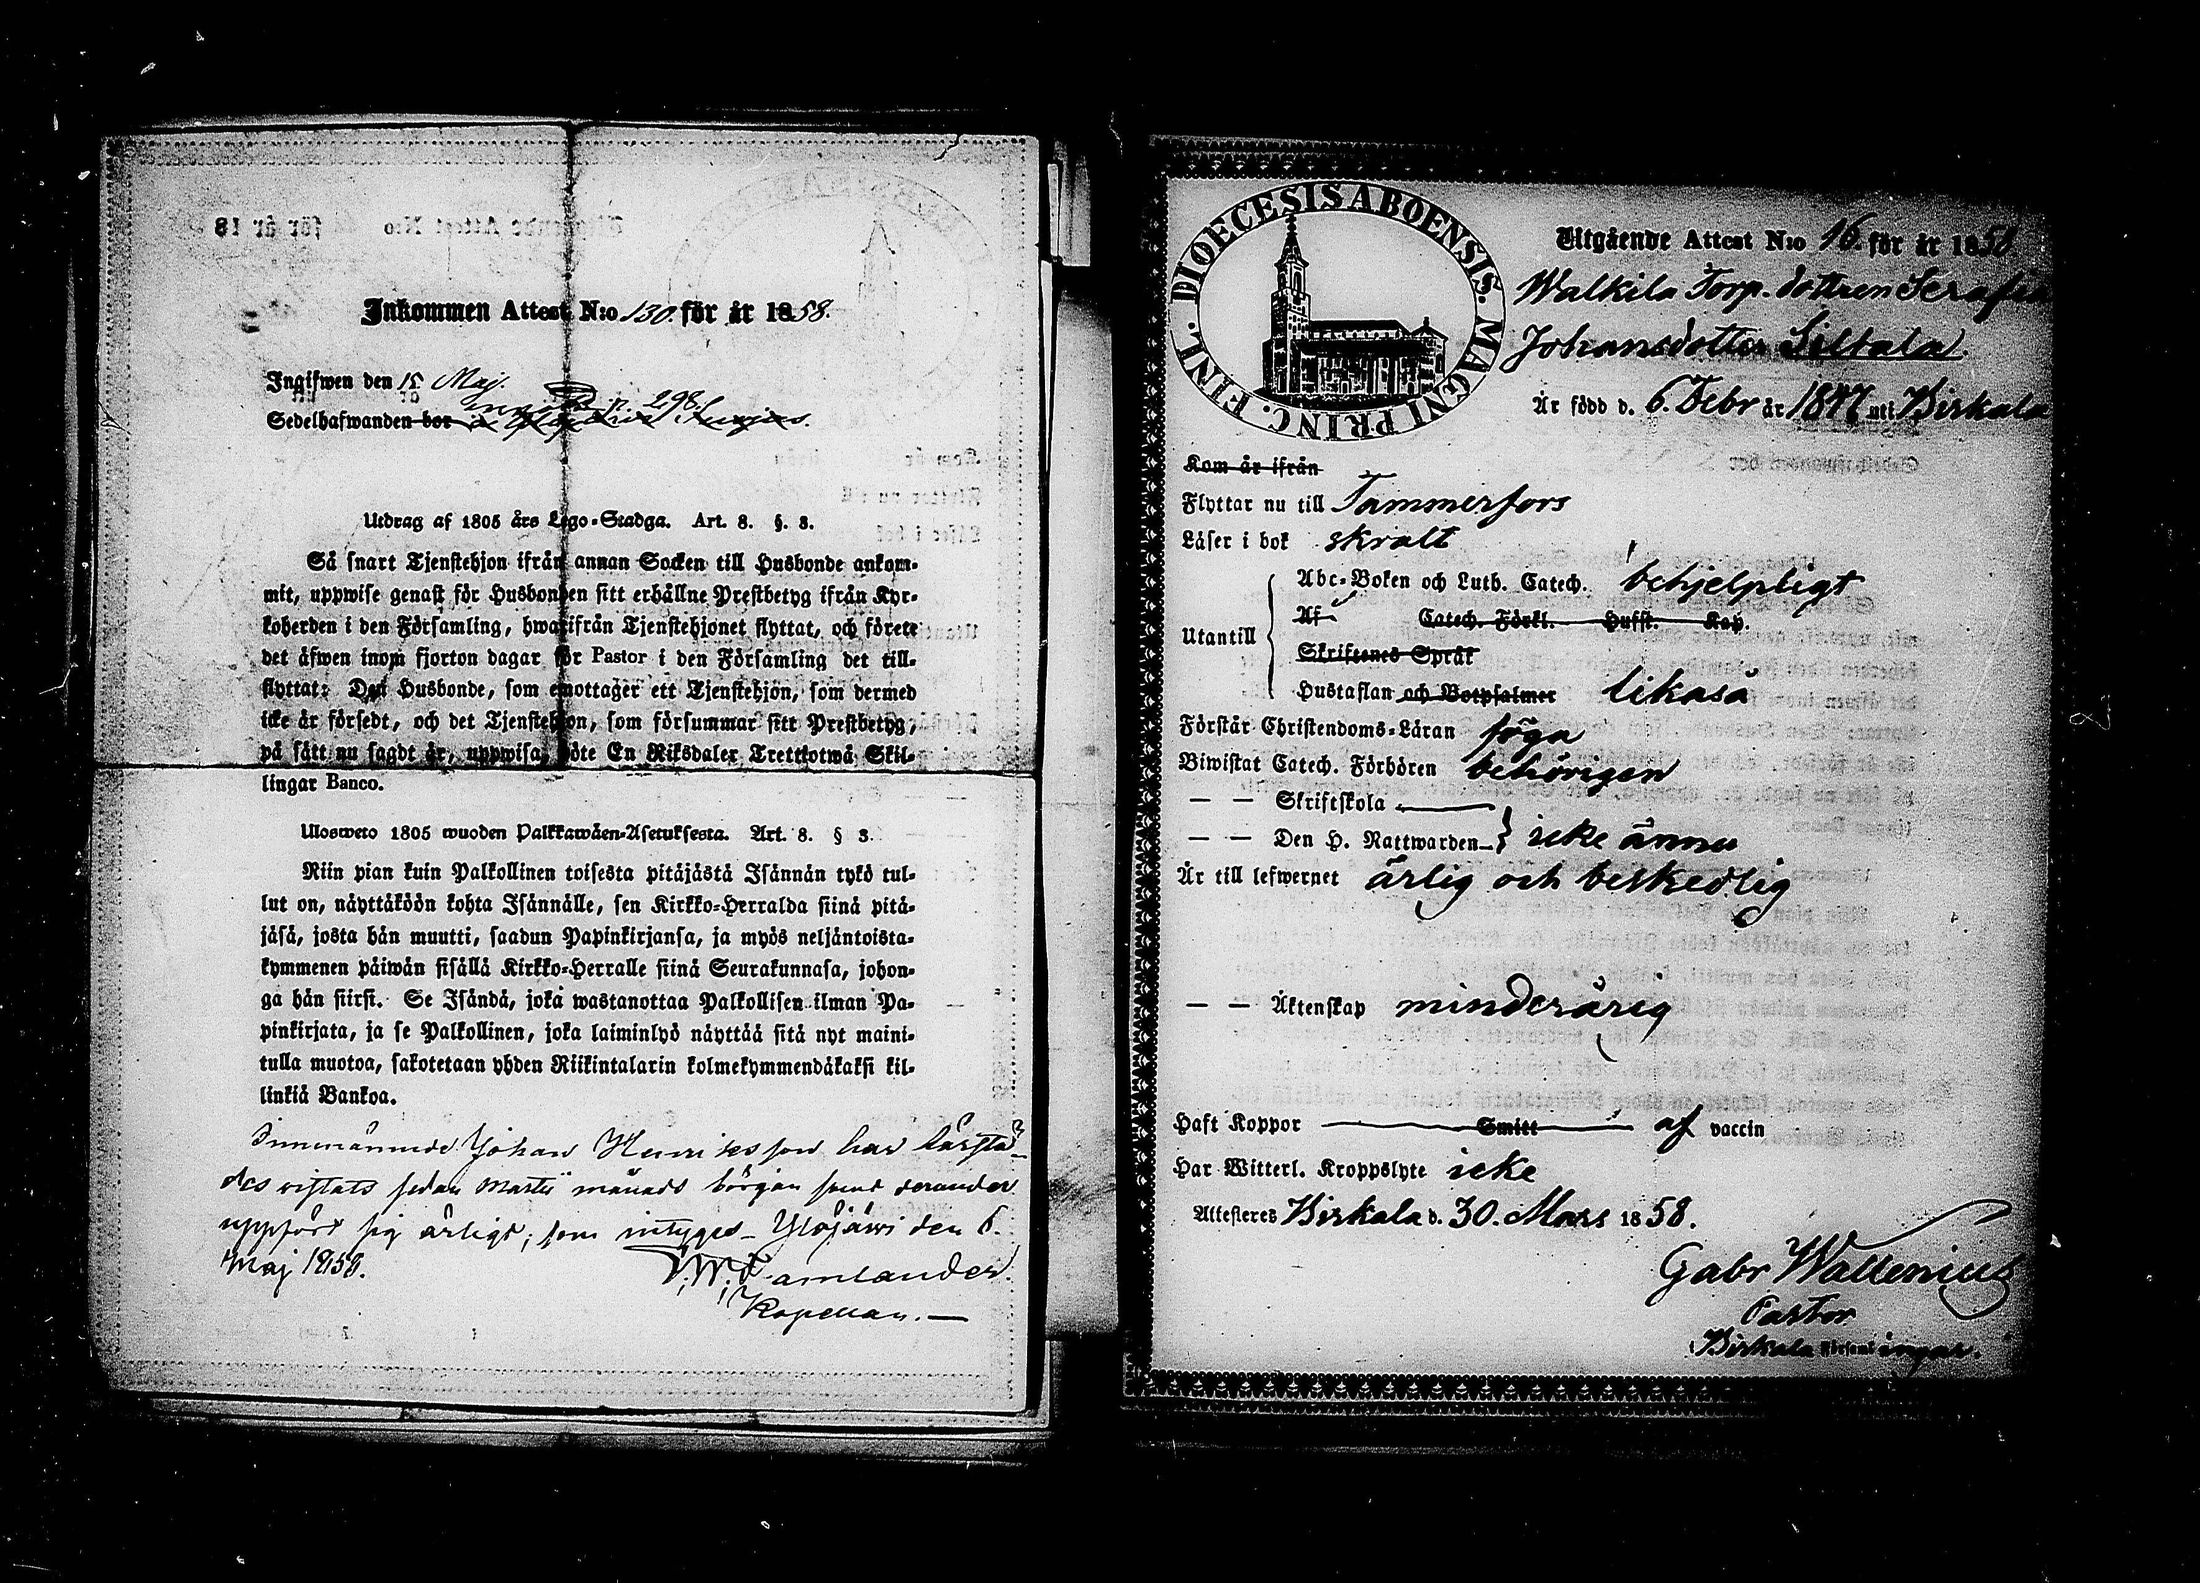 Inkommen Attest N:o 130. för år 1858.
Ingifwen den 15 Maj.
Sedelhafwanden bor 298
Utdrag af 1805 års Lego-Stadga. Art. 8. §. 3.
Så snart Tjenstehjon ifrån annan Socken till Husbonde ankom-
mit, uppwise genast för Husbonden sitt erhållne Prestbetyg ifrån Kyr-
koherden i den Församling, hwarifrån Tjenstehjonet flyttat, och förete
det äfwen inom fjorton dagar för Pastor i den Församling det till-
flyttat: Den Husbonde, som emottager ett Tjenstehjon, som dermed
icke är försedt, och det Tjenstehjon, som försummar sitt Prestbetyg,
på sätt nu sagdt är, uppwisa, böte En Riksdaler Trettiotwå Skil-
lingar Banco.
Ulosweto 1805 wuoden Palkkawäen-Asetuksesta. Art. 8. § 3.
Niin pian kuin Palkollinen toisesta pitäjästä Isännän tykö tul-
lut on, näyttäköön kohta Isännälle, sen Kirkko-Herralda siinä pitä-
jäsä, josta hän muutti, saadun Papinkirjansa, ja myös neljäntoista-
kymmenen päiwän sisällä Kirkko-Herralle siinä Seurakunnasa, johon-
ga hän siirsi. Se Isändä, joka wastanottaa Palkollisen ilman Pa-
pinkirjata, ja se Palkollinen, joka laiminlyö näyttää sitä nyt maini-
tulla muotoa, sakotetaan yhden Riikintalarin kolmekymmendäkaksi kil-
linkiä Bankoa.
Innenämnde Johan Henriksson har härstä-
des vistats sedan Martii månads början samt derunder
uppfört sig ärligt; som intygas_ Ylöjärvi den 6.
Maj 1858.
Kapellan.
DIOECESIS ABOENSIS. MAGNI PRINC. FINL.
Utgående Attest N:o 16. för år 1858
Walkila Torp. dottren Serafia
Johansdotter Siltala.
Är född d. 6. Febr år 1847 uti Birkala
Kom är ifrån
Flyttar nu till Tammerfors
Läser i bok skralt
Utantill
Abc-Boken och Luth. Catech. behjelpligt
Af Catech. Förkl. Husst. Kap.
Skriftenes Språk
Hustaflan och Botpsalmer likaså
Förstår Christendoms-Läran föga
Biwistat Catech. Förhören behörigen
— — Skriftskola
— — Den H. Nattwarden icke ännu
Är till lefwernet ärlig och beskedlig
— — Äktenskap minderårig
Haft Koppor Smitt af vaccin
Har Witterl. Kroppslyte icke
Attesteres Birkala d. 30. Mars 1858.
Gabr Wallenius
Pastor
i Birkala Församlingar.